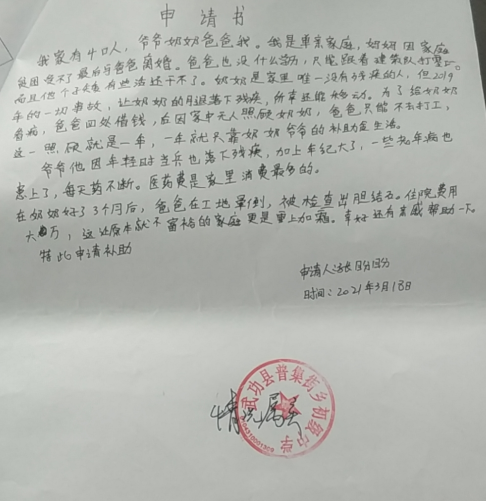 申请书
我家有4口人，爷爷奶奶爸爸我。我是单亲家庭，妈妈因家庭
贫困受不了最后与爸爸离婚。爸爸也没什么能力，只能跟着建筑队打零工。
而且他个子矮有些活还干不了。奶奶是家里唯一没有残疾的人，但2019
年的一切事故，让奶奶的月退落下残疾，所幸还能够动。为了给奶奶
看病，爸爸四处借钱，后因家中无人照顾奶奶，爸爸只能不去打工，
这一照顾就是一年，一年就只靠奶奶爷爷的补助金生活。
爷爷他因年轻时当兵也落下残疾，加上年纪大了，一些老年病也
患上了，每天药不断。医药费是家里消费最多的。
在奶奶好了3个月后，爸爸在工地晕倒，被检查出胆结石。住院费用
大万，这让原本就不富裕的家庭更是雪上加霜。幸好还有亲戚帮助一下。
特此申请补助
申请人：
时间：2021年3月18日
武功县普集街乡初级中学
情况属实